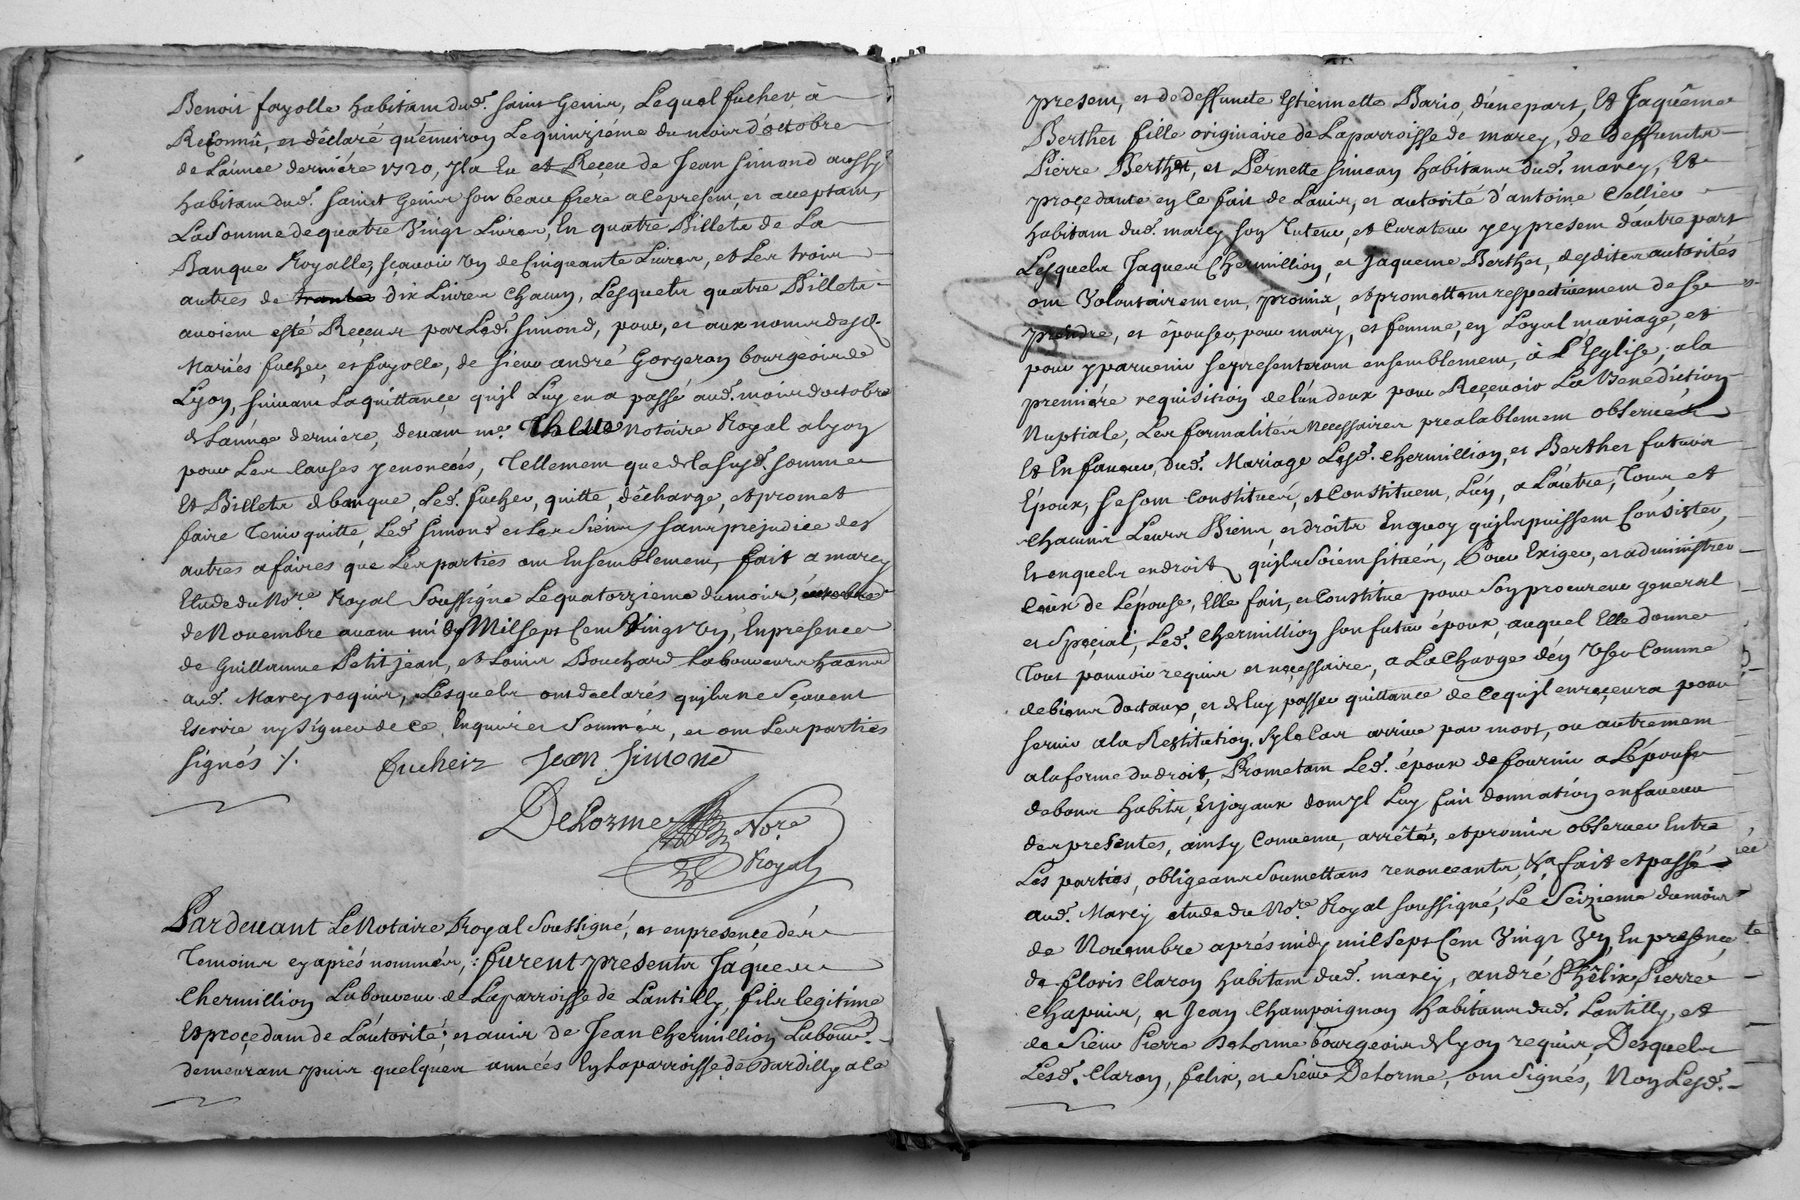 Benoit fayolle habitant dud. Saint Genis, Lequel fucher à
Reconnû, et déclaré qu'environ Le quinziéme du mois d'octobre
de L'année derniére 1720, Il a Eu et Receu de Jean Simond aussy
habitant dud. Saint Genis son beau frere a ce present, et acceptant,
La Somme de quatre Vingt Livres, En quatre Billets de La
Banque Royalle, scavoir Un de Cinquante Livres, et Les trois
autres de trante dix Livres Chacun, Lesquels quatre Billets
avoient esté Receus par Led. Simond, pour, et aux noms desd.
Mariés fucher, et fayolle, de Sieur andré Gorgeron bourgeois de
Lyon, suivant La quittance qu'il Luy en a passé aud. mois d'octobre
de L'année derniere, devant me. notaire Royal a lyon
pour Les Causes y enoncées, Tellement que de La susd. somme
Et Billets de banque, Led. fucher, quitte, décharge, et promet
faire Tenir quitte, Led. Simond et Les Siens sans prejudice des
autres afaires que Les parties ont Ensemblement, fait a marcy
Etude du Nore. Royal Soussigné Le quatorzieme du mois,
de Novembre avant midy Mil Sept Cent Vingt Un, En presence
de Guillaume Petitjean, et Louis Bouchard Laboureurs
aud. Marcy requis, Lesquels ont declarés qu'ils ne Sçavent
Escrire ny Signer de ce Enquis et Sommés, et ont Les parties
Signés /.
fucheiz Jean Simond
DeLorme Nore.
Royal
Pardevant Le Notaire Royal Soussigné, et en presence des
Temoins cy aprés nommés, : furent presents Jaques
Chermillion Laboureur de La parroisse de Lantilly, fils legitime
Et procedant de L'autorité, et avis de Jean Chermillion Labour.
demeurant puis quelques années En La parroisse de Dardilly a ce
present, et de deffuncte Estiennette Bario, d'une part, Et Jaquême
Berthet fille originaire de La parroisse de marcy, de deffuncts
Pierre Berthet, et Pernette Simon habitans dud. marcy, Et
procedante en Ce fait de L'avis, et autorité d'antoine Cellier
habitant dud. marcy son Tuteur, et Curateur y cy present d'autre part
Lesquels Jaques Chermillion, et Jaqueme Berthet, desdites autorités
ont Volontairement, promis, et promettent respectivement de Se
prendre, et épouser, pour mary, et femme, en Loyal mariage, et
pour y parvenir se presenteront ensemblement, à L'Esglise, a la
premiére requisition de L'un deux pour Reçevoir La Benediction
Nuptiale, Les formalités necessaires prealablement observées
Et En faveur, dud. Mariage Lesd. Chermillion, et Berthet futurs
Epoux, se sont Constitués, et Constituent, L'un, a L'autre, Tous, et
chacuns Leurs Biens, et droits En quoy qu'ils puissent Consister,
Et en quels endroit qu'ils Soient situés, Pour Exiger, et administrer
Ceux de L'épouse, Elle fait, et Constitue pour Son procureur general
et Special, Led. Chermillion son futur époux, auquel Elle donne
Tout pouvoir requis et necessaire, a La Charge d'en User Comme
de biens doctaux, et de luy passer quittance de Ce qu'il en reçevra pour
servir a la Restitution. Sy le Cas arrive par mort, ou autrement
a la forme du droit, Prometant Led. époux de fournir a L'épouse
de bons habits, et joyaux dont Il Luy fait donnation en faveur
des presentes, ainsy Convenu, arrêté, et promis observer Entre
Les parties, obligeans Soumettans renonceants, &a fait et passé
aud. Marcy etude du Nore. Royal soussigné, Le Seizieme du mois
de Novembre aprés midy mil Sept Cent Vingt Un En presence
de floris Claron habitant dud. marcy, andré Phélix Pierre
Chapuis, et Jean Champaignon habitans dud. Lantilly, et
de Sieur Pierre Delorme bourgeois de lyon requis, Desquels
Lesd. Claron, felix, et Sieur DeLorme, ont Signés, Non Lesd.